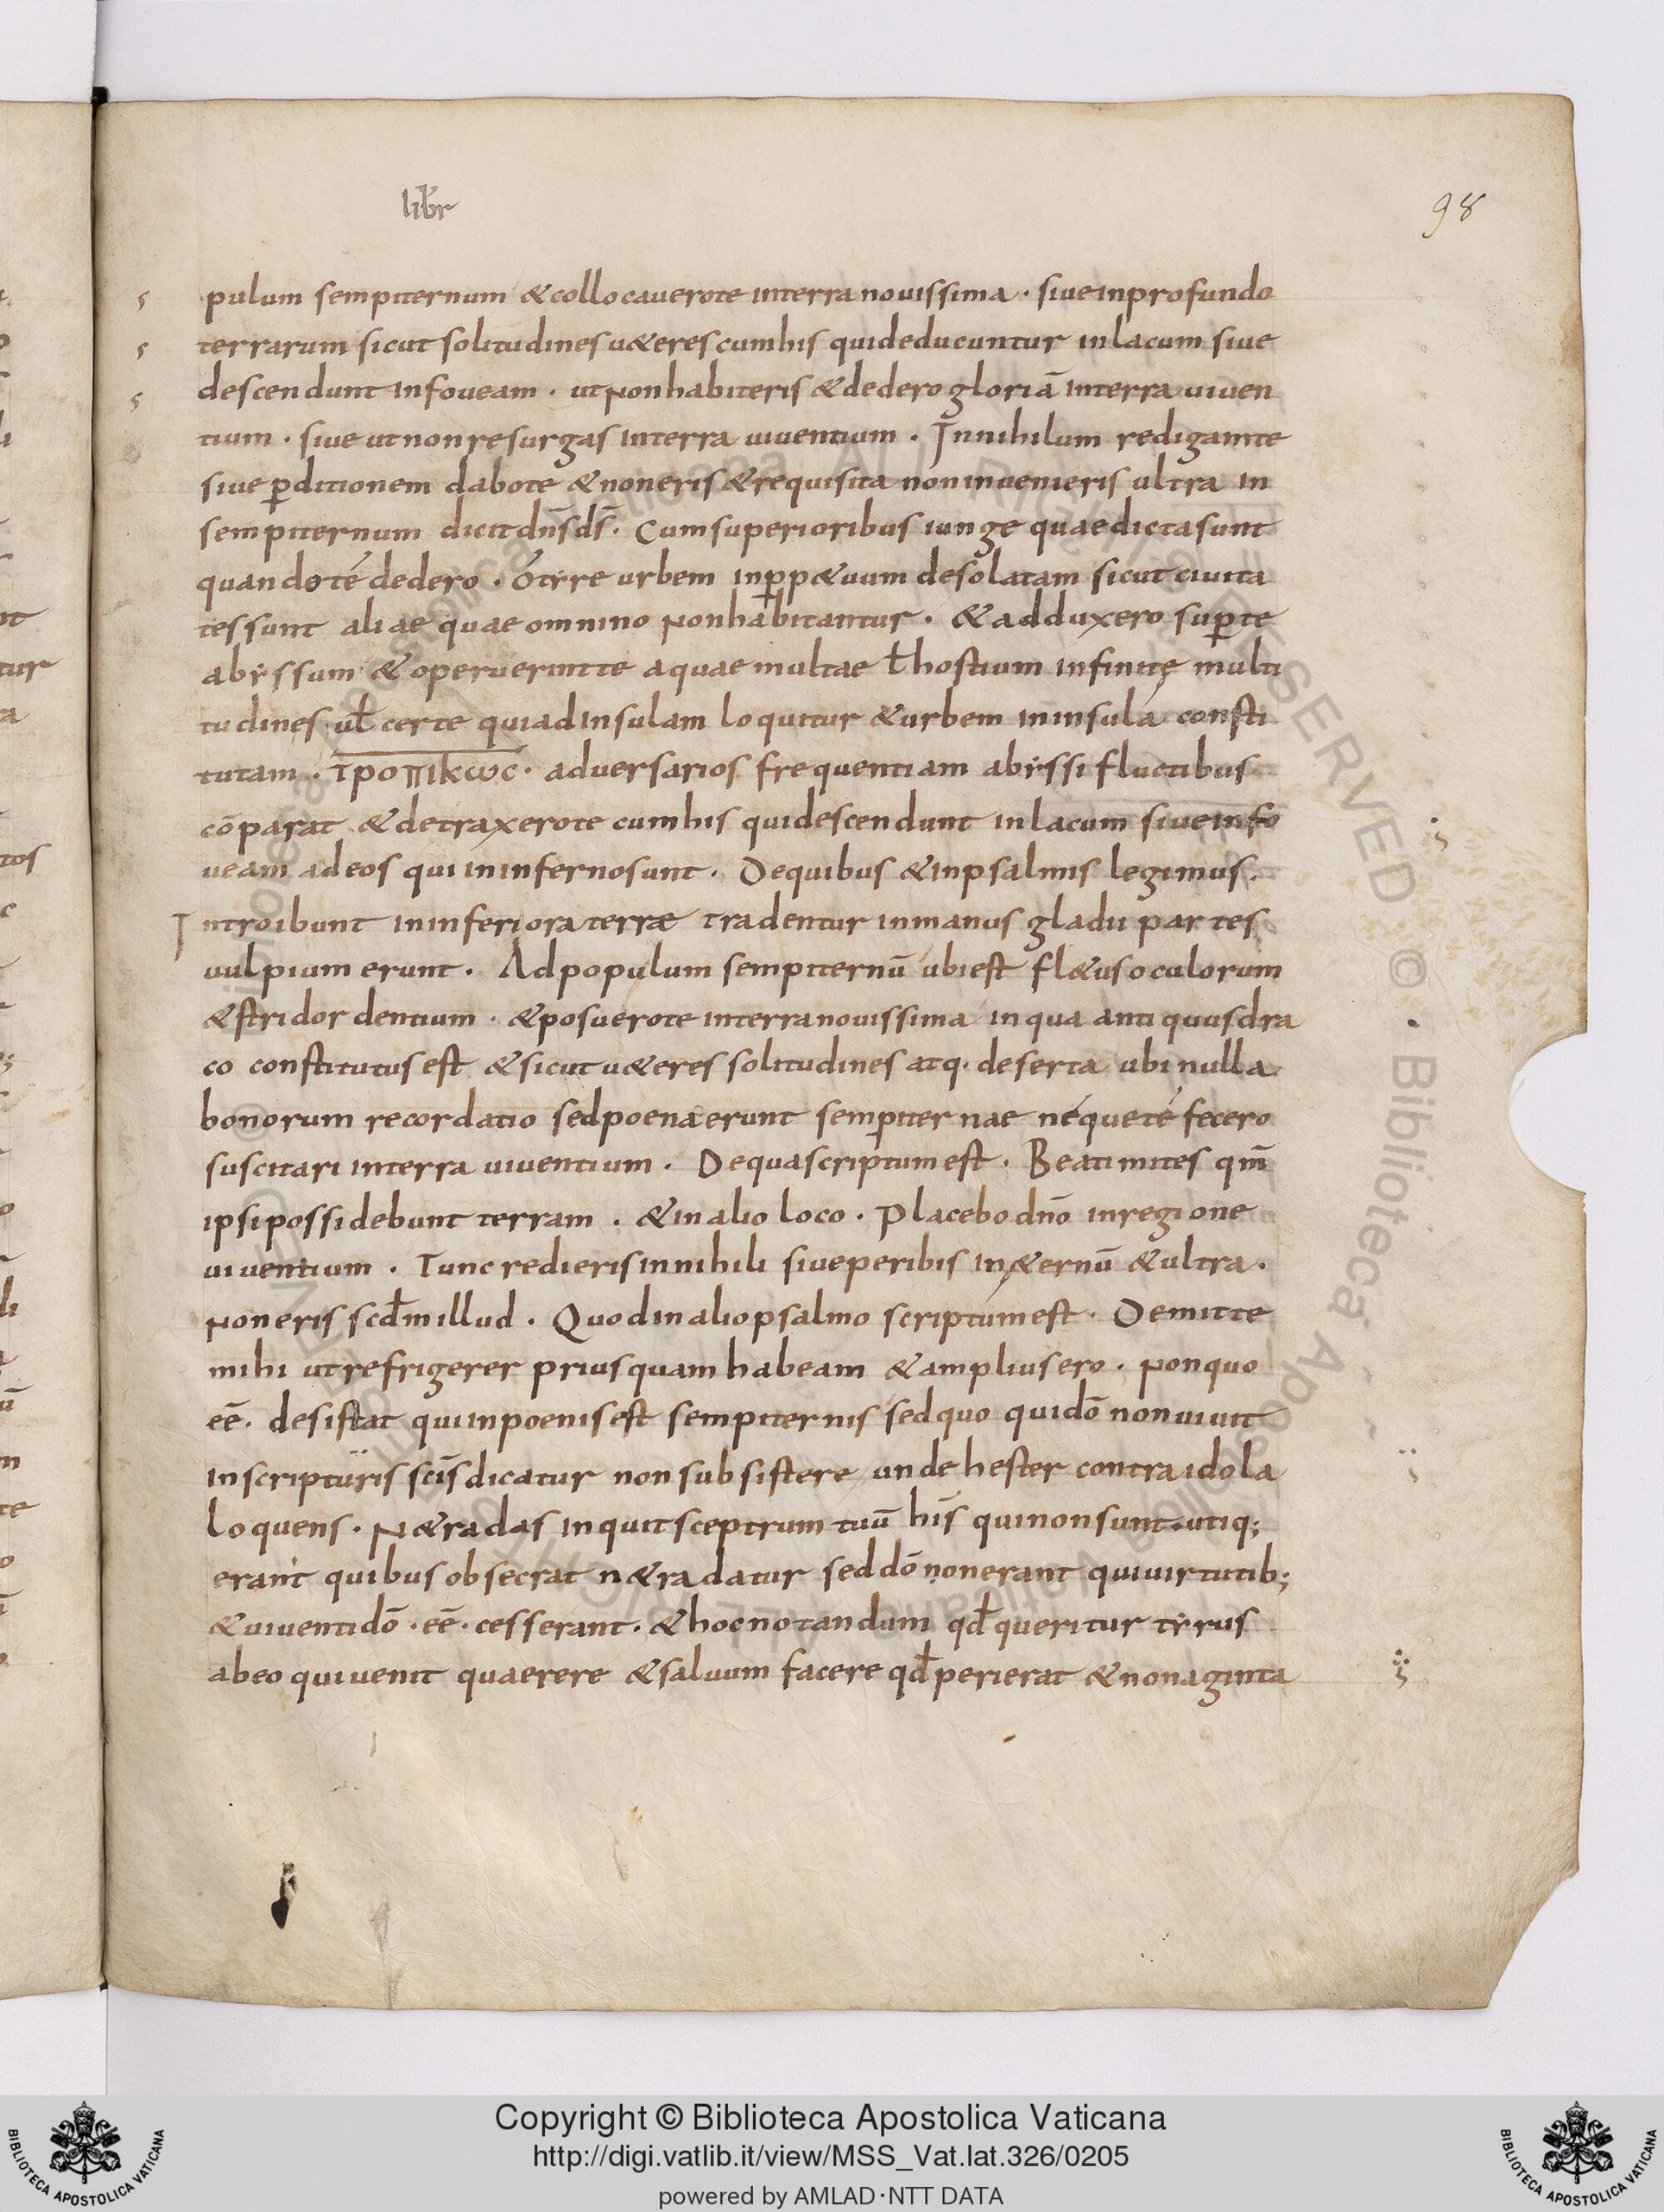 libr
98
pulum sempiternum & collocauero te in terra nouissima · siue in profundo
terrarum sicut solitudines u&eres cum his qui deducuntur in lacum siue
descendunt in foueam · ut non habiteris & dedero gloriā in terra uiuen
tium · siue ut non resurgas in terra uiuentium · In nihilum redigam te
siue ꝑditionem dabo te & non eris & requisita non inuenieris ultra in
sempiternum dicit dn̄s ds̄ · Cum superioribus iunge quae dicta sunt
quando té dedero · ó tẏre urbem in ꝑp&uum desolatam sicut ciuita
tes sunt aliae quae omnino non habitantur · & adduxero suꝑ te
abẏssum & operuerint te aquae multae ł hostium infinitę multi
tudines uł certe quia d insulam loquitur & urbem in insula consti
tutam · τροπικωc · aduersarios frequentiam abẏssi fluctibus
cōparat & detraxero te cum his qui descendunt in lacum siue in fo
ueam ad eos qui in inferno sunt · De quibus & in psalmis legimus ·
Introibunt in inferiora terrae tradentur in manus gladii partes
uulpium erunt · Ad populum sempiternū ubi est fl&us oculorum
& stridor dentium · & posuero te in terra nouissima in qua antiquus dra
co constitutus est & sicut u&eres solitudines atq· deserta ubi nulla
bonorum recordatio sed poena erunt sempiternae néque té fecero
suscitari in terra uiuentium · De qua scriptum est · Beati mites qm̄
ipsi possidebunt terram · & in alio loco · Placebo dn̄o in regione
uiuentium · Tunc redieris in nihili siue peribis in &ernū & ultra ·
non eris scd̄m illud · Quod in alio psalmo scriptum est · Demitte
mihi ut refrigerer priusquam habeam & amplius ero · non quo
eē · desistat qui in poenis est sempiternis sed quo qui dō non uiuit
in scripturis scīs dicatur non subsistere unde hester contra idola
loquens · N& radas inquit sceptrum tuū his qui non sunt · utiq;
erant quibus obsecrat n& radatur sed dō non erant qui uirtutib;
& uiuenti dō · eē · cesserant · & hoc notandum qd̄ queritur tẏrus
ab eo qui uenit quaerere & saluum facere qd̄ perierat & nonaginta
Copyright © Biblioteca Apostolica Vaticana
http://digi.vatlib.it/view/MSS_Vat.lat.326/0205
powered by AMLAD·NTT DATA
BIBLIOTECA APOSTOLICA VATICANA
BIBLIOTECA APOSTOLICA VATICANA